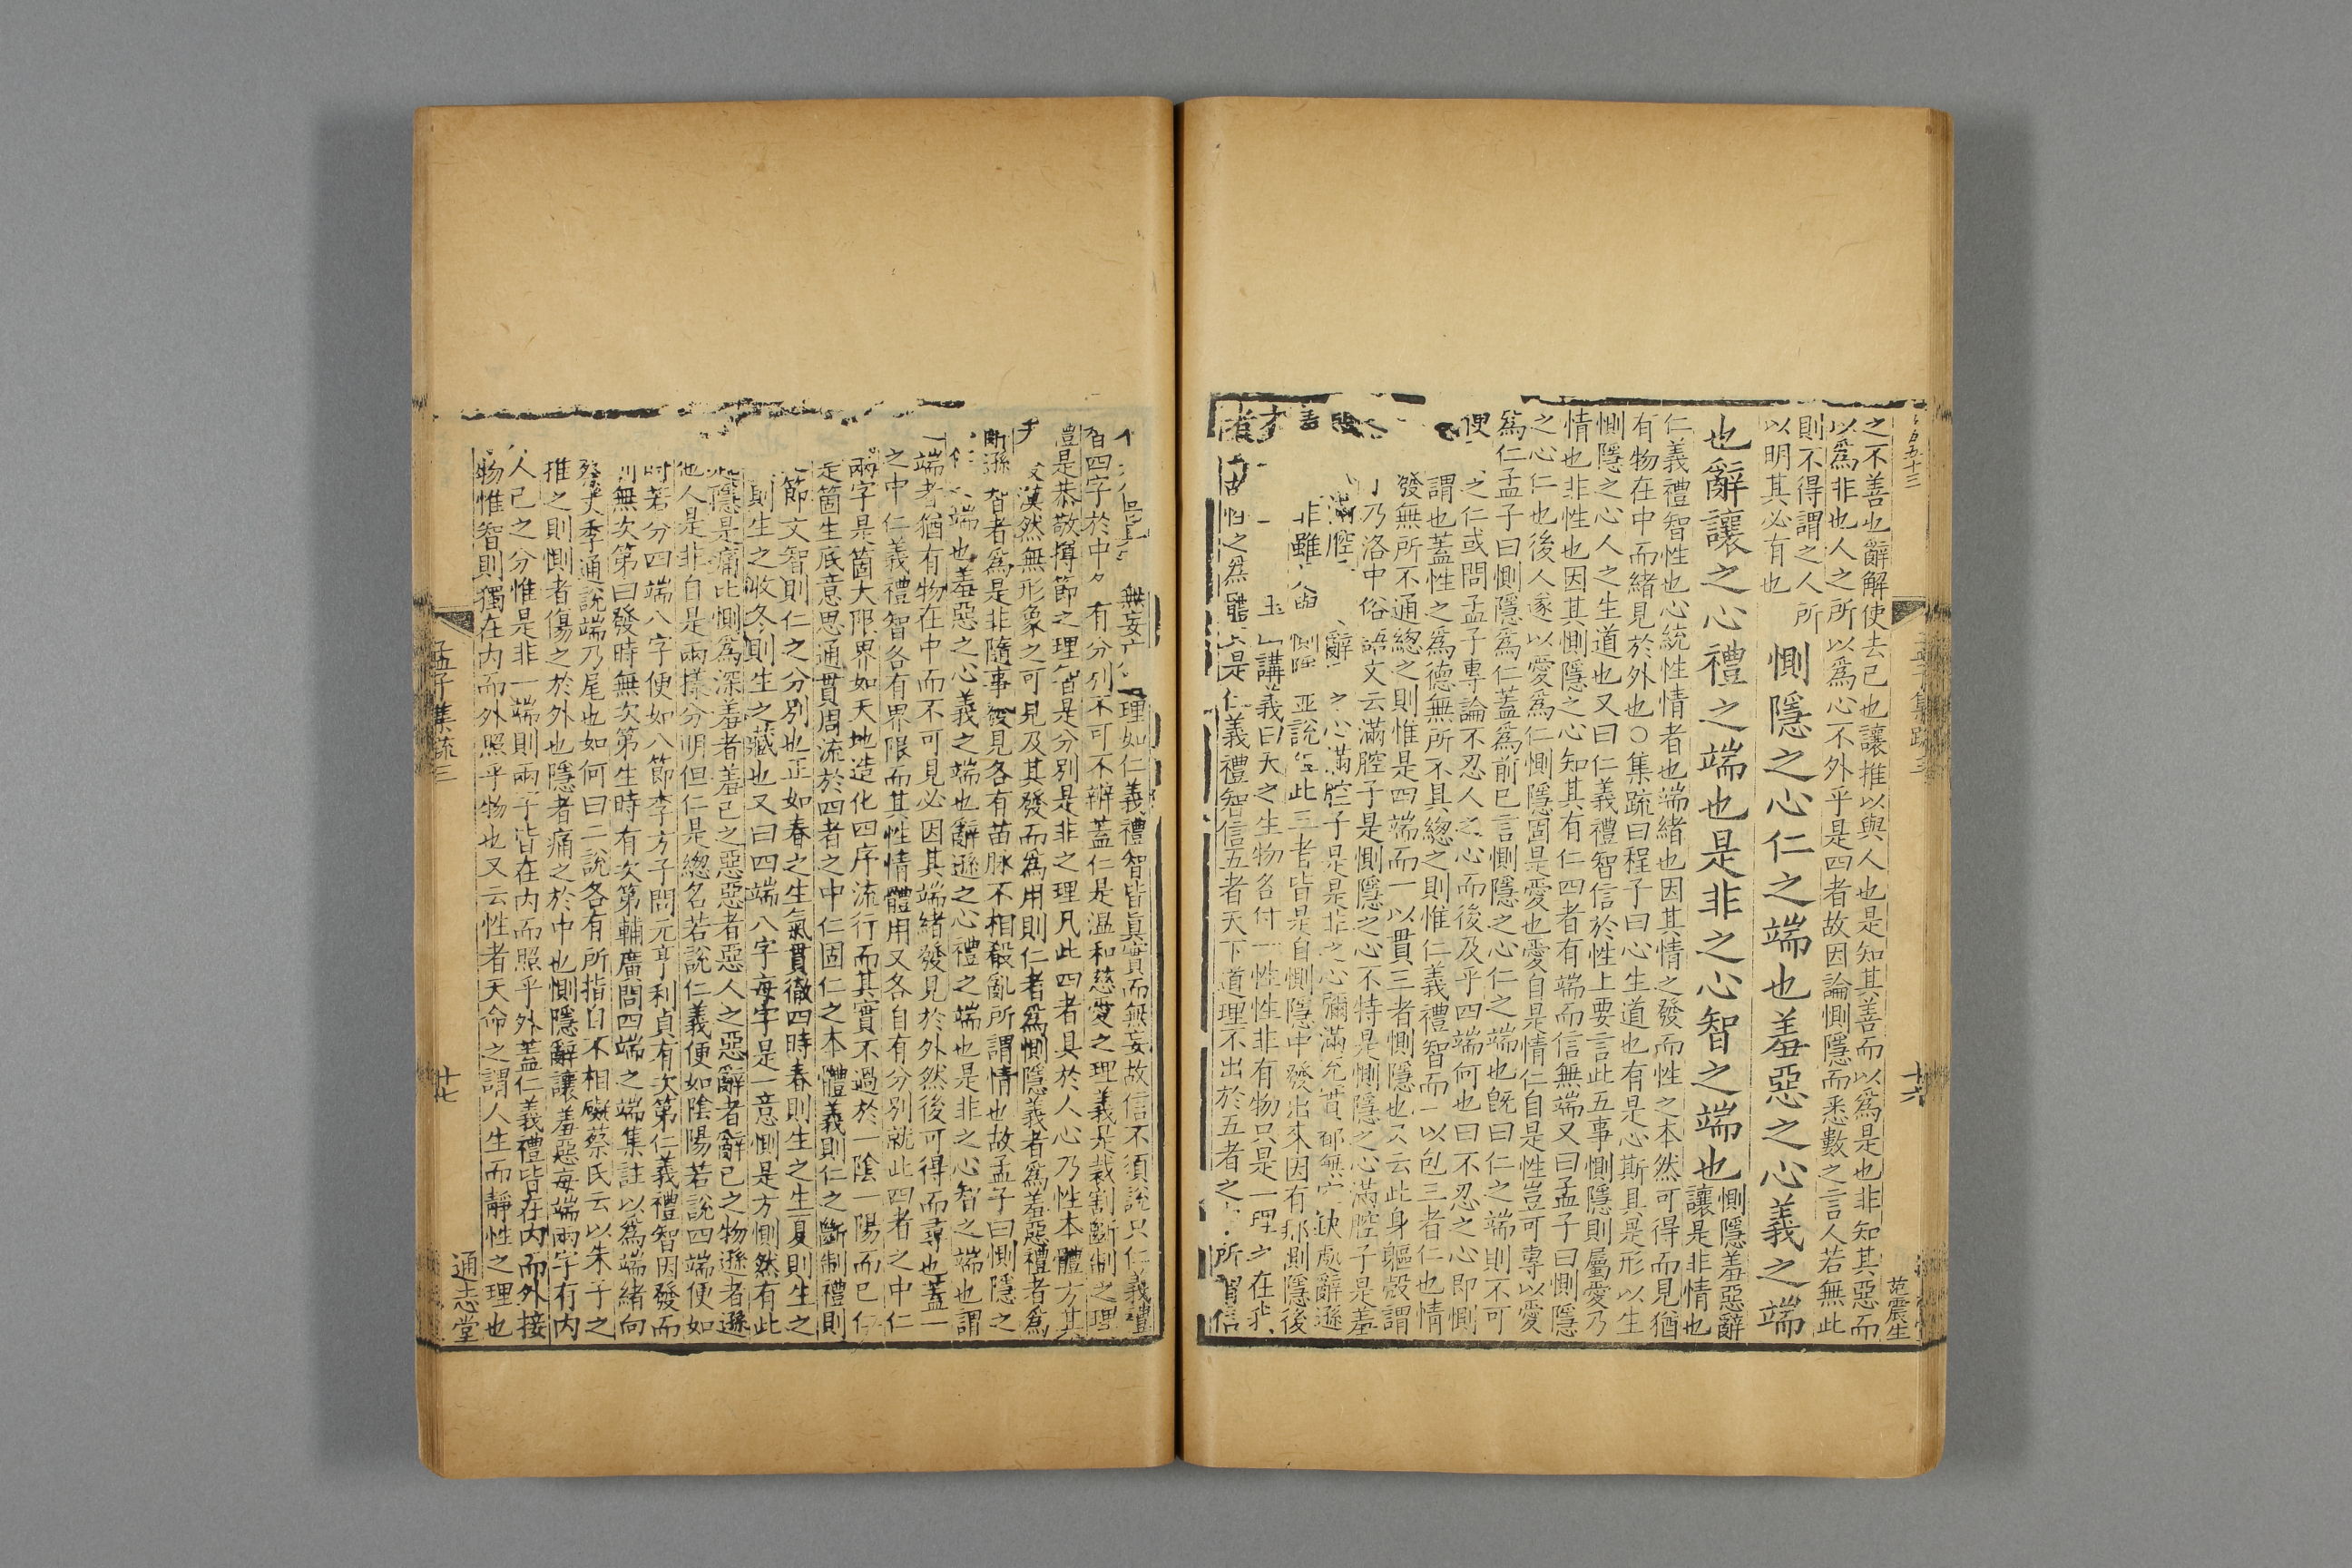 之不善也辭解使去己也讓推以與人也是知其善而以為是也非知其惡而
以為非也人之所以為心不外乎是四者故因論惻隱而悉數之言人若無此
則不得謂之人所
以明其必有也
惻隱之心仁之端也羞惡之心義之端
也辭讓之心禮之端也是非之心智之端也
惻隱羞惡辭
讓是非情也
仁義禮智性也心統性情者也端緒也因其情之發而性之本然可得而見猶
有物在中而緒見於外也○集疏曰程子曰心生道也有是心斯具是形以生
惻隱之心人之生道也又曰仁義禮智信於性上要言此五事惻隱則屬愛乃
情也非性也因其惻隱之心知其有仁四者有端而信無端又曰孟子曰惻隱
之心仁也後人遂以愛為仁惻隱固是愛也愛自是情仁自是性豈可專以愛
為仁孟子曰惻隱為仁蓋為前已言惻隱之心仁之端也旣曰仁之端則不可
便 之仁或問孟子專論不忍人之心而後及乎四端何也曰不忍之心即惻
謂也蓋性之為德無所不具緫之則惟仁義禮智而一以包三者仁也情
發無所不通緫之則惟是四端而一以貫三者惻隱也又云此身軀殼謂
乃洛中俗語文云滿腔子是惻隱之心不特是惻隱之心滿腔子是羞
滿腔 辭 之心滿腔子是是非之心彌滿充實都無空缺處辭遜
非雖 惻隱 亚說 此三者皆是自惻隱中發出來因有那惻隱後
講義曰天之生物各付一性性非有物只是一理之在我
性之為體 是仁義禮智信五者天下道理不出於五者之 所謂信
無妄 理如仁義禮智皆眞實而無妄故信不須說只仁義禮
智四字於中 有分別不可不辨蓋仁是温和慈愛之理義是裁割斷制之理
豊是恭敬撙節之理智是分別是非之理凡此四者具於人心乃性本體方其
漠然無形象之可見及其發而為用則仁者為惻隱義者為羞惡禮者為
遜 智者為是非隨事發見各有苗脉不相殽亂所謂情也故孟子曰惻隱之
端也羞惡之心義之端也辭遜之心禮之端也是非之心智之端也謂
端者猶有物在中而不可見必因其端緒發見於外然後可得而尋也蓋一
之中仁義禮智各有界限而其性情體用又各自有分別就此四者之中仁
兩字是箇大限界如天地造化四序流行而其實不過於一陰一陽而已仁
是箇生底意思通貫周流於四者之中仁固仁之本體義則仁之斷制禮則
節文智則仁之分別也正如春之生氣貫徹四時春則生之生夏則生之
則生之收冬則生之藏也又曰四端八字每字是一意惻是方惻然有此
隱是痛比惻為深羞者羞己之惡惡者惡人之惡辭者辭己之物遜者遜
他人是非自是兩樣分明但仁是緫名若說仁義便如陰陽若說四端便如
時若分四端八字便如八節李方子問元亨利貞有次第仁義禮智因發而
無次第曰發時無次第生時有次第輔廣問四端之端集註以為端緒向
蔡丈季通說端乃尾也如何曰二說各有所指自不相礙蔡氏云以朱子之
推之則惻者傷之於外也隱者痛之於中也惻隱辭讓羞惡每端兩字有内
人己之分惟是非一端則兩字皆在内而照乎外蓋仁義禮皆在内而外接
物惟智則獨在内而外照乎物也又云性者天命之謂人生而靜性之理也
孟子集疏三
十七
通志堂
十六
范震生